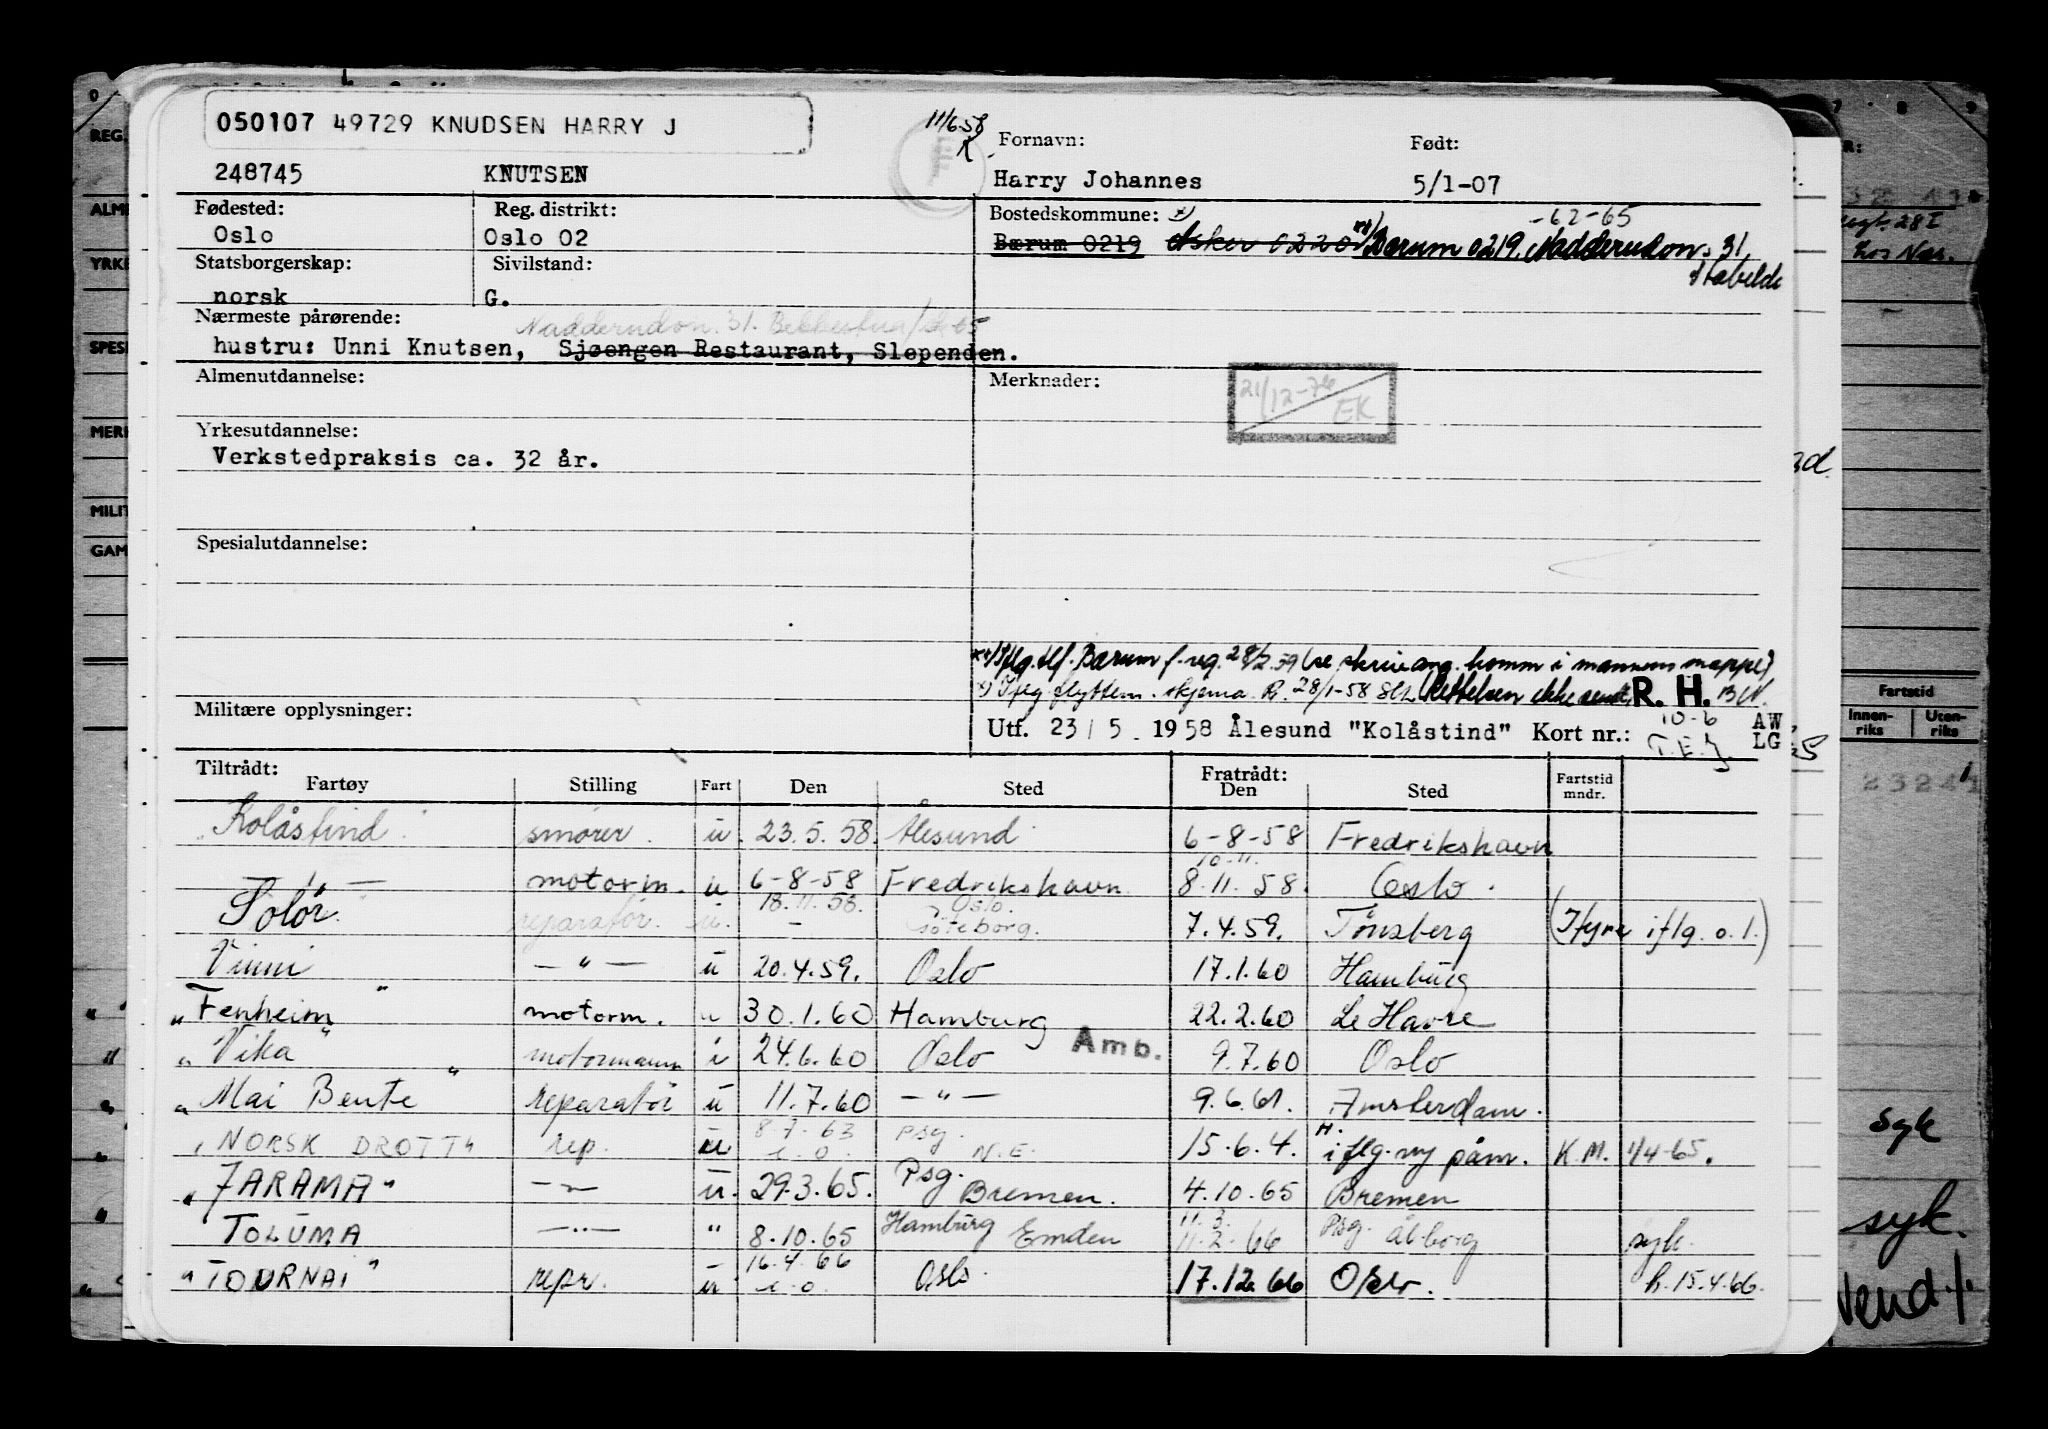 050107 49729 KNUDSEN HARRY J
11/6.58
248745 KNUTSEN
Fornavn: Født:
Harry Johannes 5/1-07
Fødested: Reg. distrikt: Bostedskommune: x)
-62-65
Oslo Oslo 02 Bærum 0219 Asker 0220 xx) Bærum 0219. Nadderudvn. 31,
Stabekk
Statsborgerskap: Sivilstand:
norsk G.
Nærmeste pårørende: Nadderudvn. 31. Bekkestua
hustru: Unni Knutsen, Sjøengen Restaurant, Slependen.
Almenutdannelse: Merknader:
21/12-76
EK
Yrkesutdannelse:
Verkstedpraksis ca. 32 år.
Spesialutdannelse:
xx) Iflg. tlf. Bærum f. reg. 28/2.59 (se skriv ang. komm i mannens mappe)
x) Iflg flyttem. skjema R. 28/1-58 (Rettelsen ikke sendt) R. H. BN.
Militære opplysninger:
Utf. 23/5 1958 Ålesund "Kolåstind" Kort nr.: 10-6 AW
T.E.J LG
Tiltrådt: Fratrådt:
Fartøy Stilling Fart Den Sted Den Sted Fartstid mndr.
"Kolåstind" smører. u. 23.5.58. Ålesund 6-8-58 Fredrikshavn
— " — motorm. u 6-8-58 Fredrikshavn 10.11. 8.11.58. Oslo.
Solør reparatør. u. 18.11.58. - Oslo. Göteborg. 7.4.59. Tönsberg (Hyre iflg. o. l.)
Vinni — " — u 20.4.59. Oslo 17.1.60 Hamburg
"Fenheim" motorm. u 30.1.60 Hamburg 22.2.60 Le Havre
"Vika" motormann i 24.6.60 Oslo Amb. 9.7.60 Oslo
"Mai Bente" reparatør u 11.7.60 — " — 9.6.61. Amsterdam.
"NORSK DROTT" rep. u 8-7-63 i.o. Psg. N.E. 15.6.4. H. iflg. ny påm. K.M. 1/4-65.
"JARAMA" — " — u. 29.3.65. Psg. Bremen. 4.10.65 Bremen
TOLUMA — " — " 8.10.65 Hamburg Emden 11.3. 11.2.66 Psg. Ålborg syk.
"TOURNAI" repr. u 16.4.66 i.o. Oslo. 17.12.66 Oslo. h. 15.4.66.
0
REG.
YRKE
SPES
MERK
MILIT
GAM
7 8 9
Fartstid
Innen-
riks
Uten-
riks
syk
syk.
Vend./.